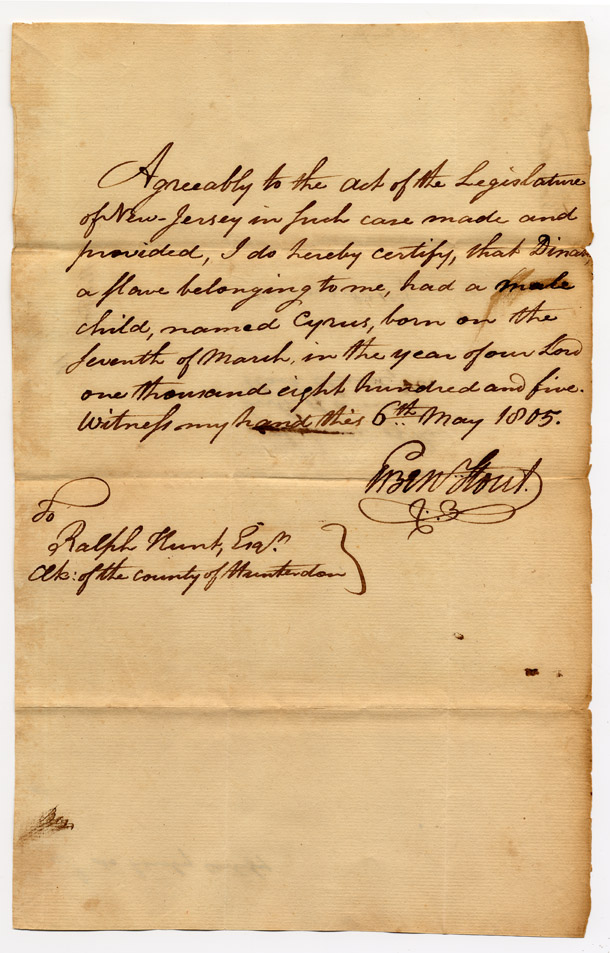 Agreeably to the act of the Legislature
of New-Jersey in such case made and
provided, I do hereby certify, that Dinah,
a slave belonging to me, had a male
child, named Cyrus, born on the
seventh of March, in the year of our Lord
one thousand eight hundred and five.
Witness my hand this 6th May 1805.
Stout.
To
Ralph Hunt, Esqr.
Clk: of the county of Hunterdon